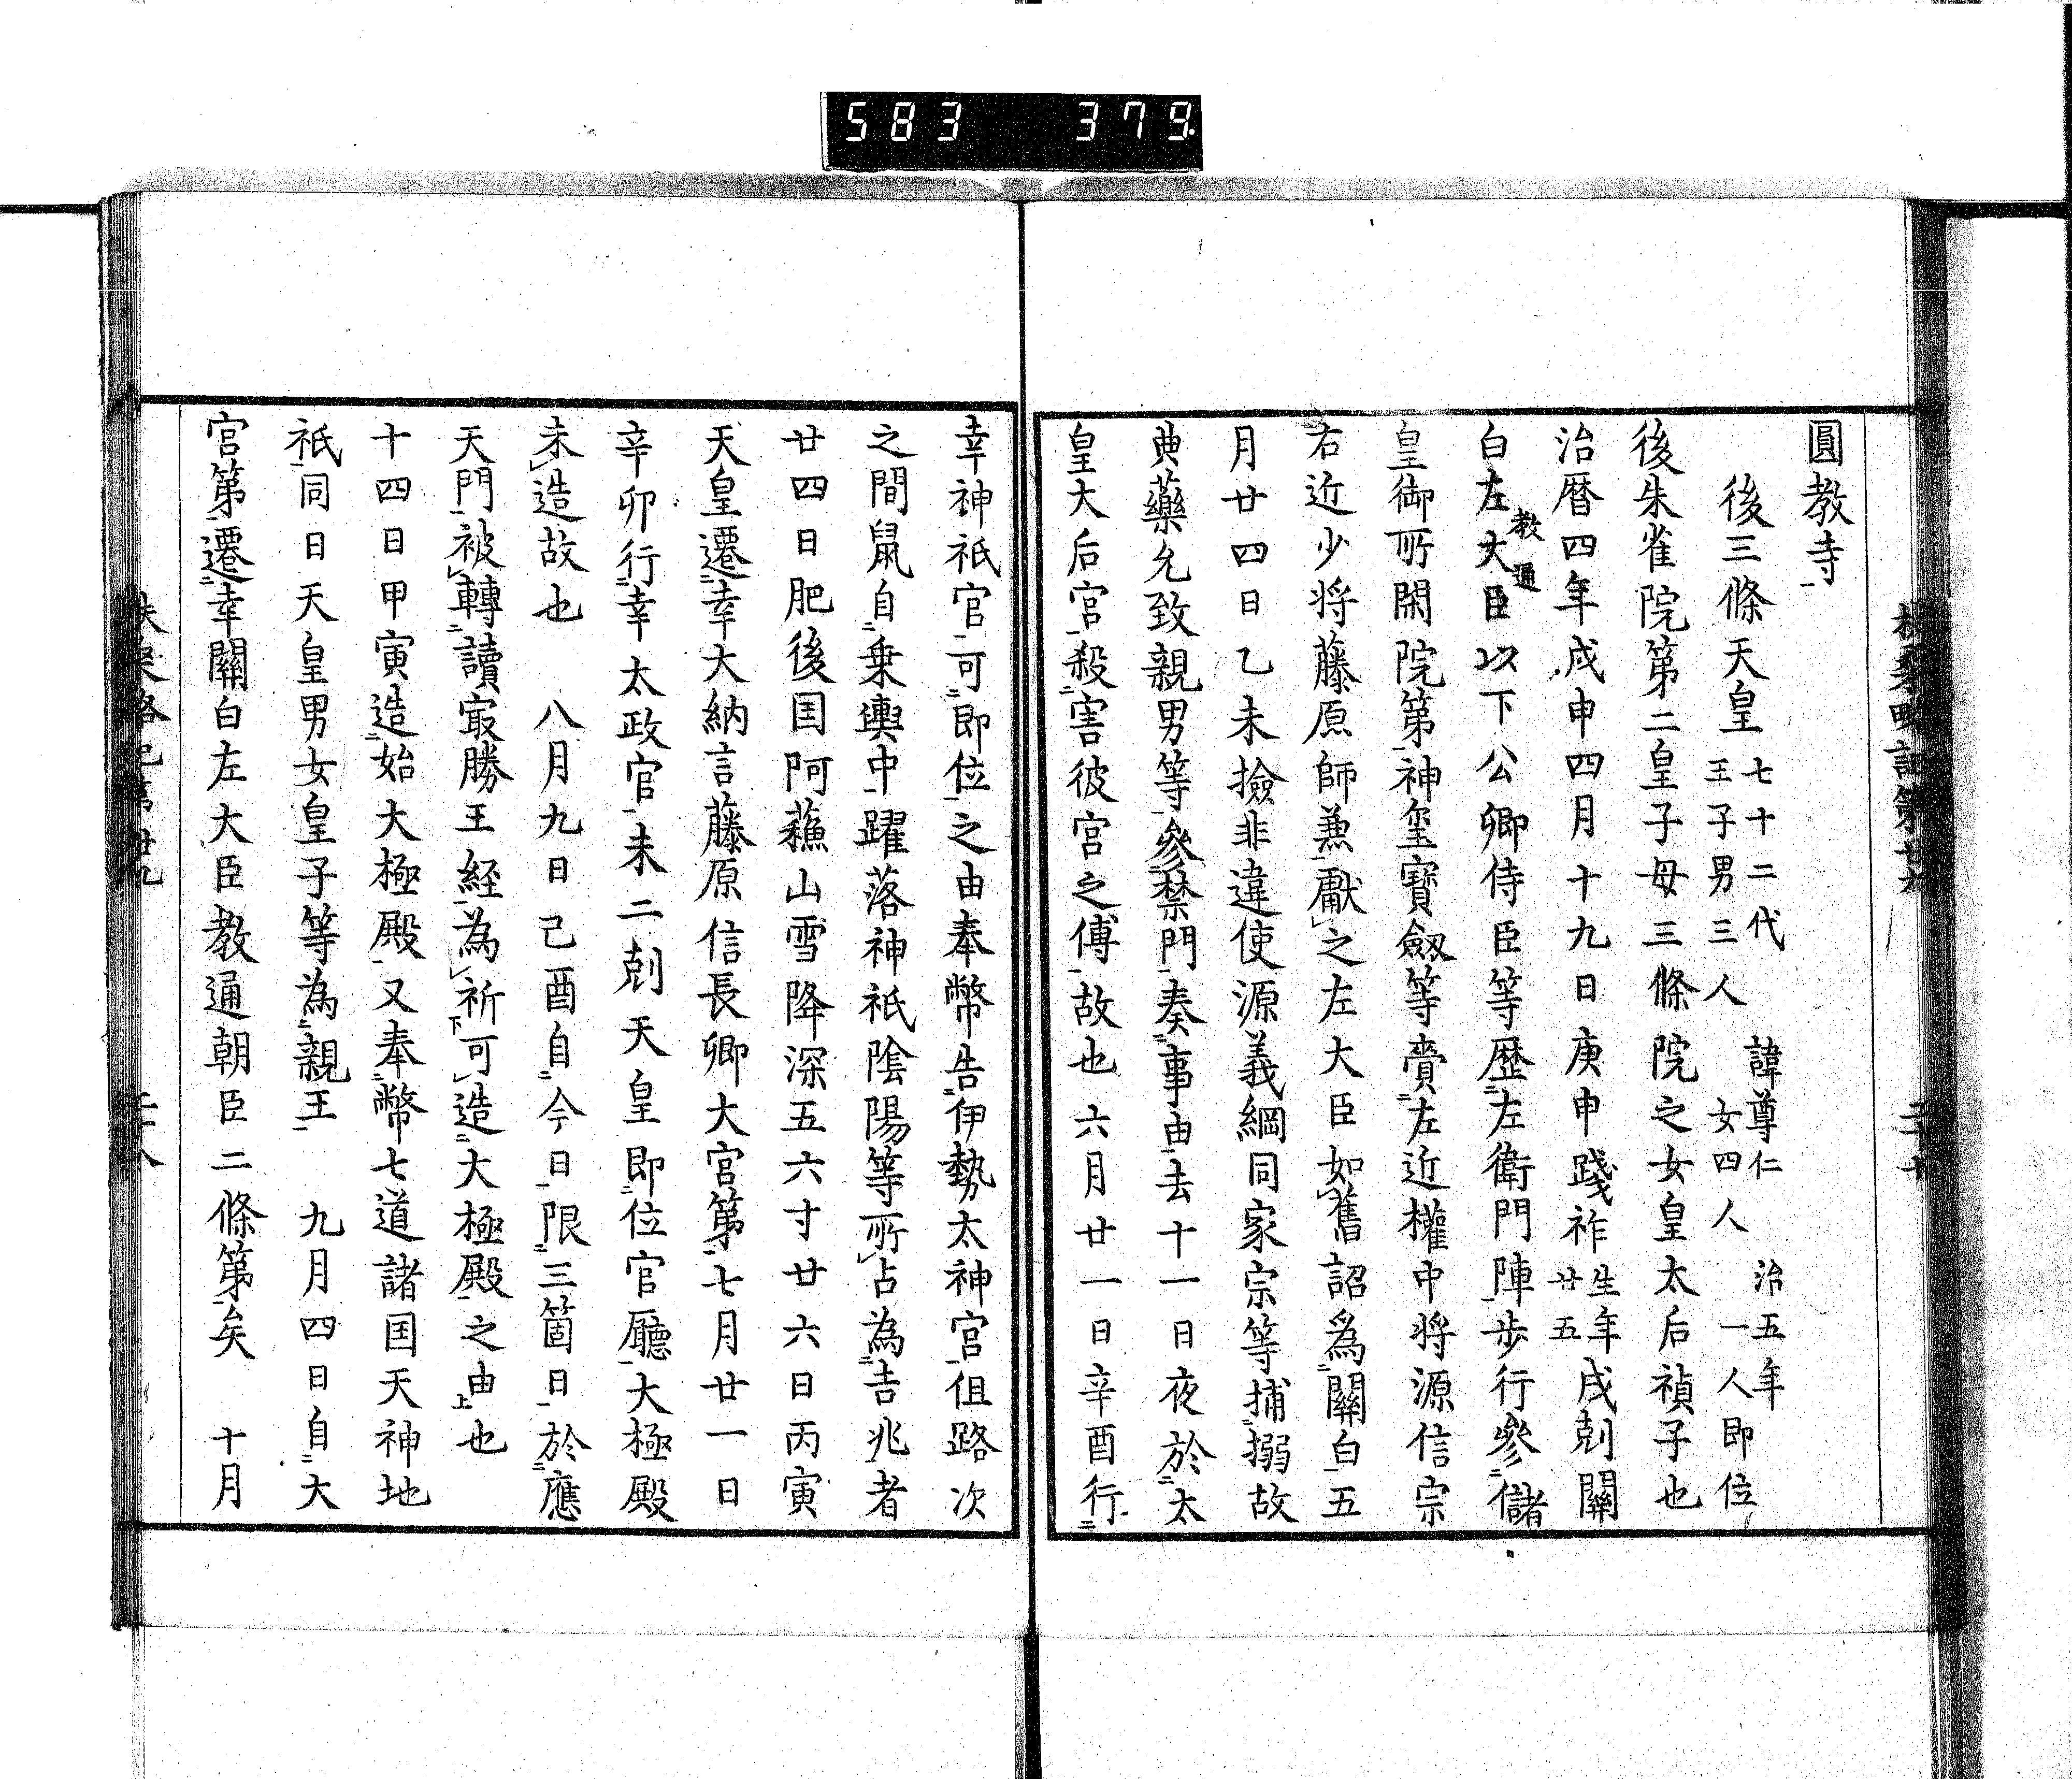 583 379
圓教寺
後三條天皇 七十二代 諱尊仁 治五年
王子男三人 女四人 一人即位
後朱雀院第二皇子母三條院之女皇太后禎子也
治暦四年戌申四月十九日庚申踐祚 生年廿五 戌剋關
白左大臣教通以下公卿侍臣等歴左衛門陣步行參儲
皇御所閑院第神璽寶劔等賷左近權中将源信宗
右近少将藤原師兼獻之左大臣如舊詔為關白五
月廿四日乙未撿非違使源義綱同家宗等捕搦故
典藥允致親男等參禁門奏事由去十一日夜於太
皇大后宮殺害彼宮之傅故也 六月廿一日辛酉行
幸神祇官可即位之由奉幣告伊勢太神宮但路次
之間鼠自乗輿中躍落神祇陰陽等所占為吉兆者
廿四日肥後国阿蘓山雪降深五六寸廿六日丙寅
天皇遷幸大納言藤原信長卿大宮第七月廿一日
辛卯行幸太政官未二剋天皇即位官廳大極殿
未造故也 八月九日己酉自今日限三箇日於應
天門被轉讀最勝王経為祈可造大極殿之由也
十四日甲寅造始大極殿又奉幣七道諸国天神地
祇同日天皇男女皇子等為親王 九月四日自大
宮第遷幸關白左大臣教通朝臣二條第矣 十月